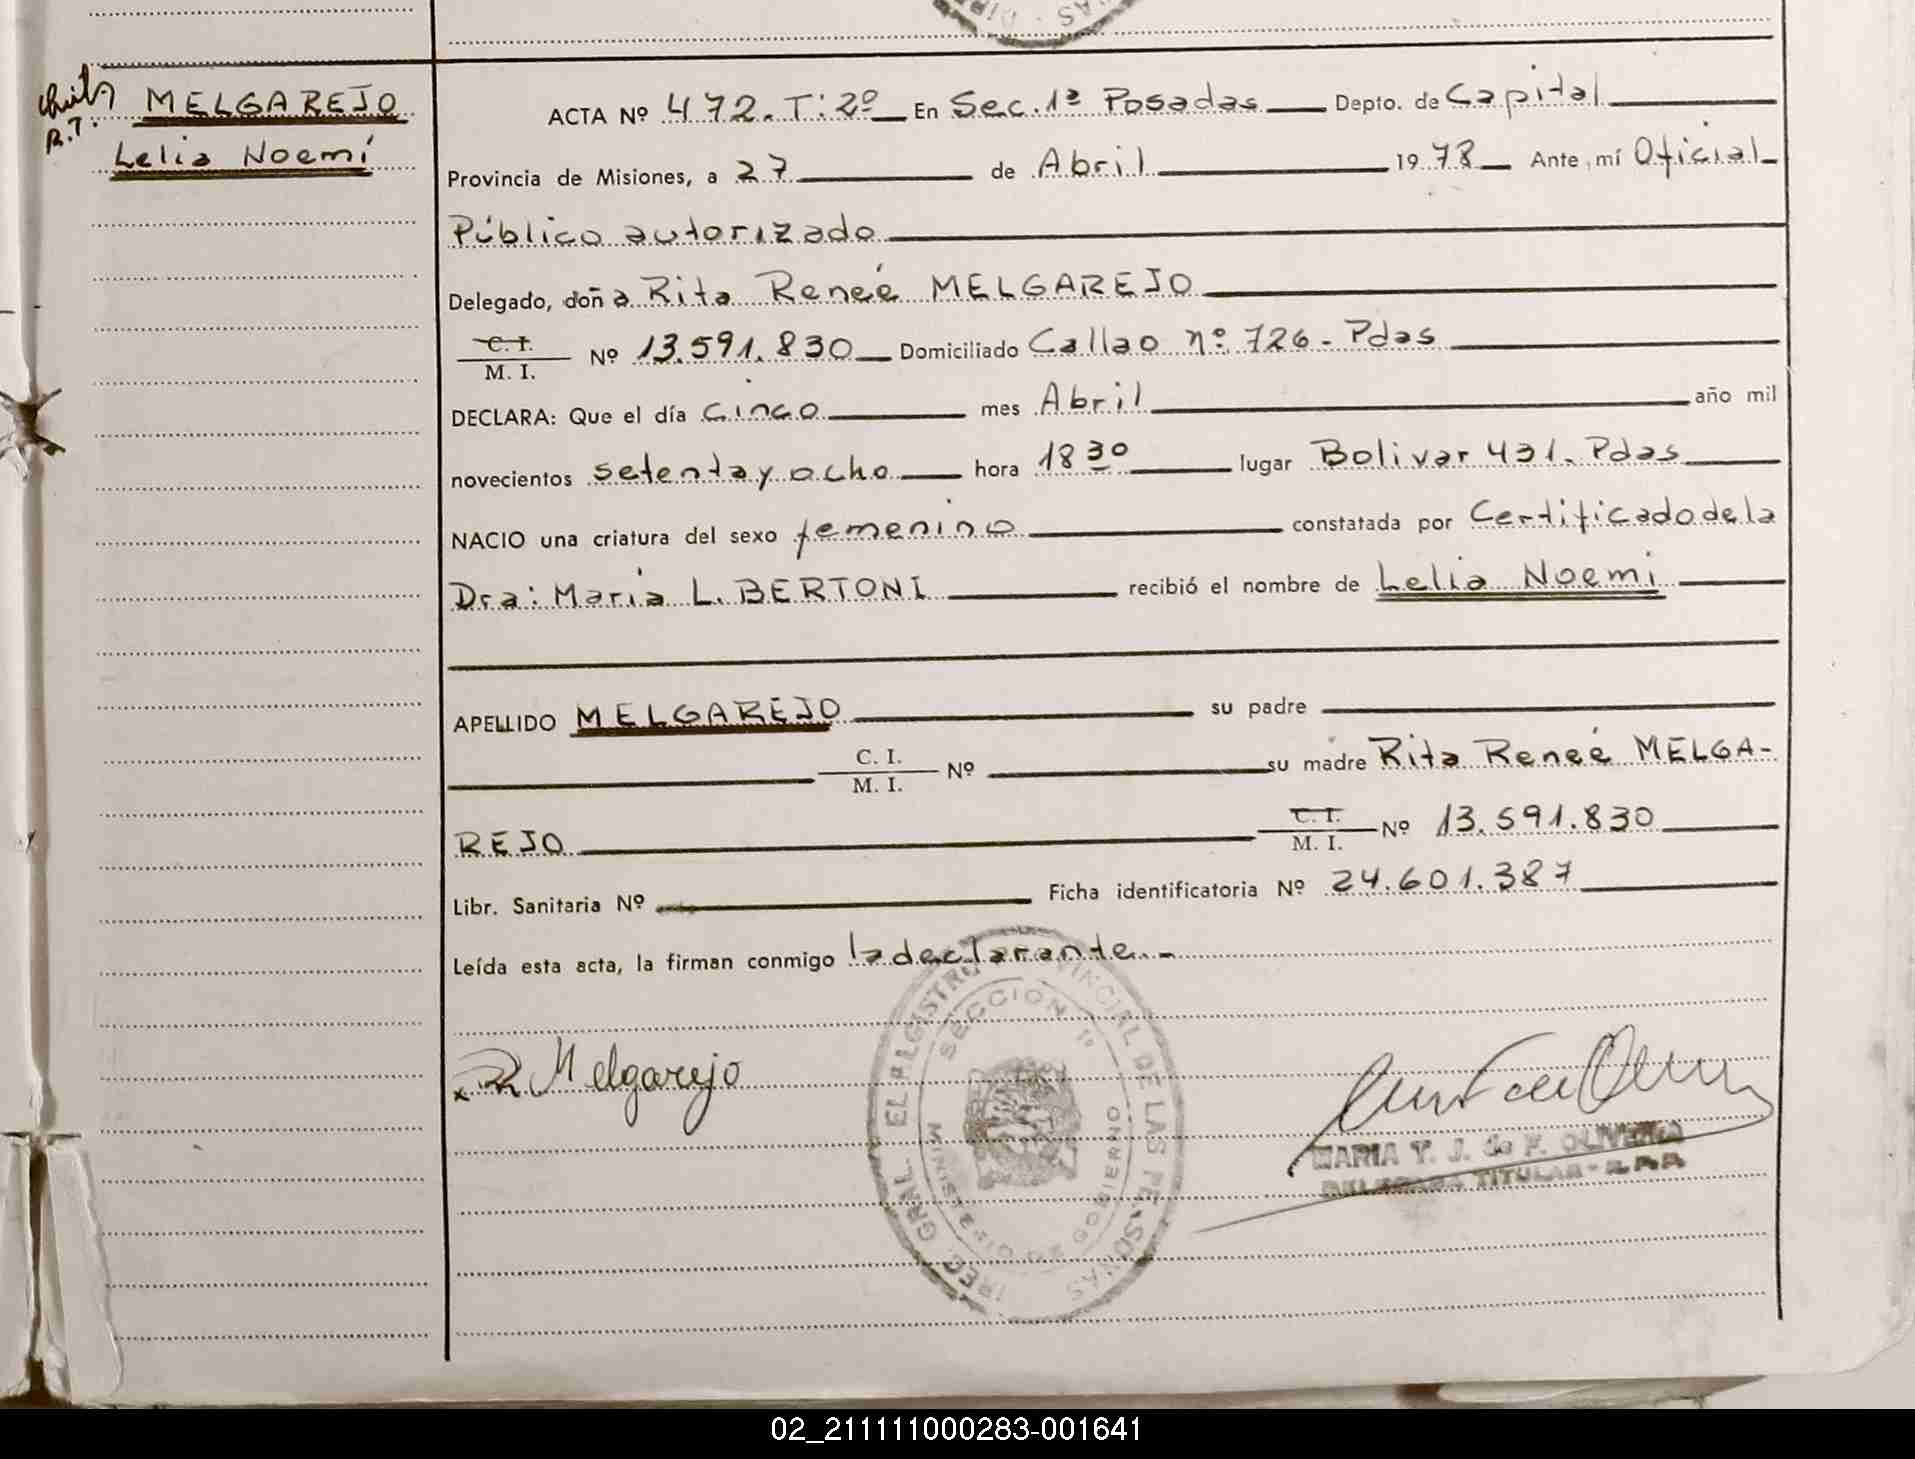 MELGAREJO
R.T.
Lelia Noemí
ACTA Nº 472. T: 2º En Sec. 1ª Posadas Depto. de Capital
Provincia de Misiones, a 27 de Abril 1978 Ante mí Oficial
Público autorizado
Delegado, doña Rita Reneé MELGAREJO
C. I.
M. I.
Nº 13.591.830 Domiciliado Callao nº 726 - Pdas
DECLARA: Que el día cinco mes Abril año mil
novecientos setenta y ocho hora 18 30 lugar Bolivar 431. Pdas
NACIO una criatura del sexo femenino constatada por Certificado de la
Dra: Maria L. BERTONI recibió el nombre de Lelia Noemi
APELLIDO MELGAREJO su padre
C. I.
M. I.
Nº su madre Rita Reneé MELGA-
REJO
C. I.
M. I.
Nº 13.591.830
Libr. Sanitaria Nº Ficha identificatoria Nº 24.601.387
Leída esta acta, la firman conmigo la declarante.-
SECCION 1ª
R Melgarejo
MARIA T. J. de F. OLIVEIRA
DELEGADA TITULAR - R.P.P.
02_211111000283-001641